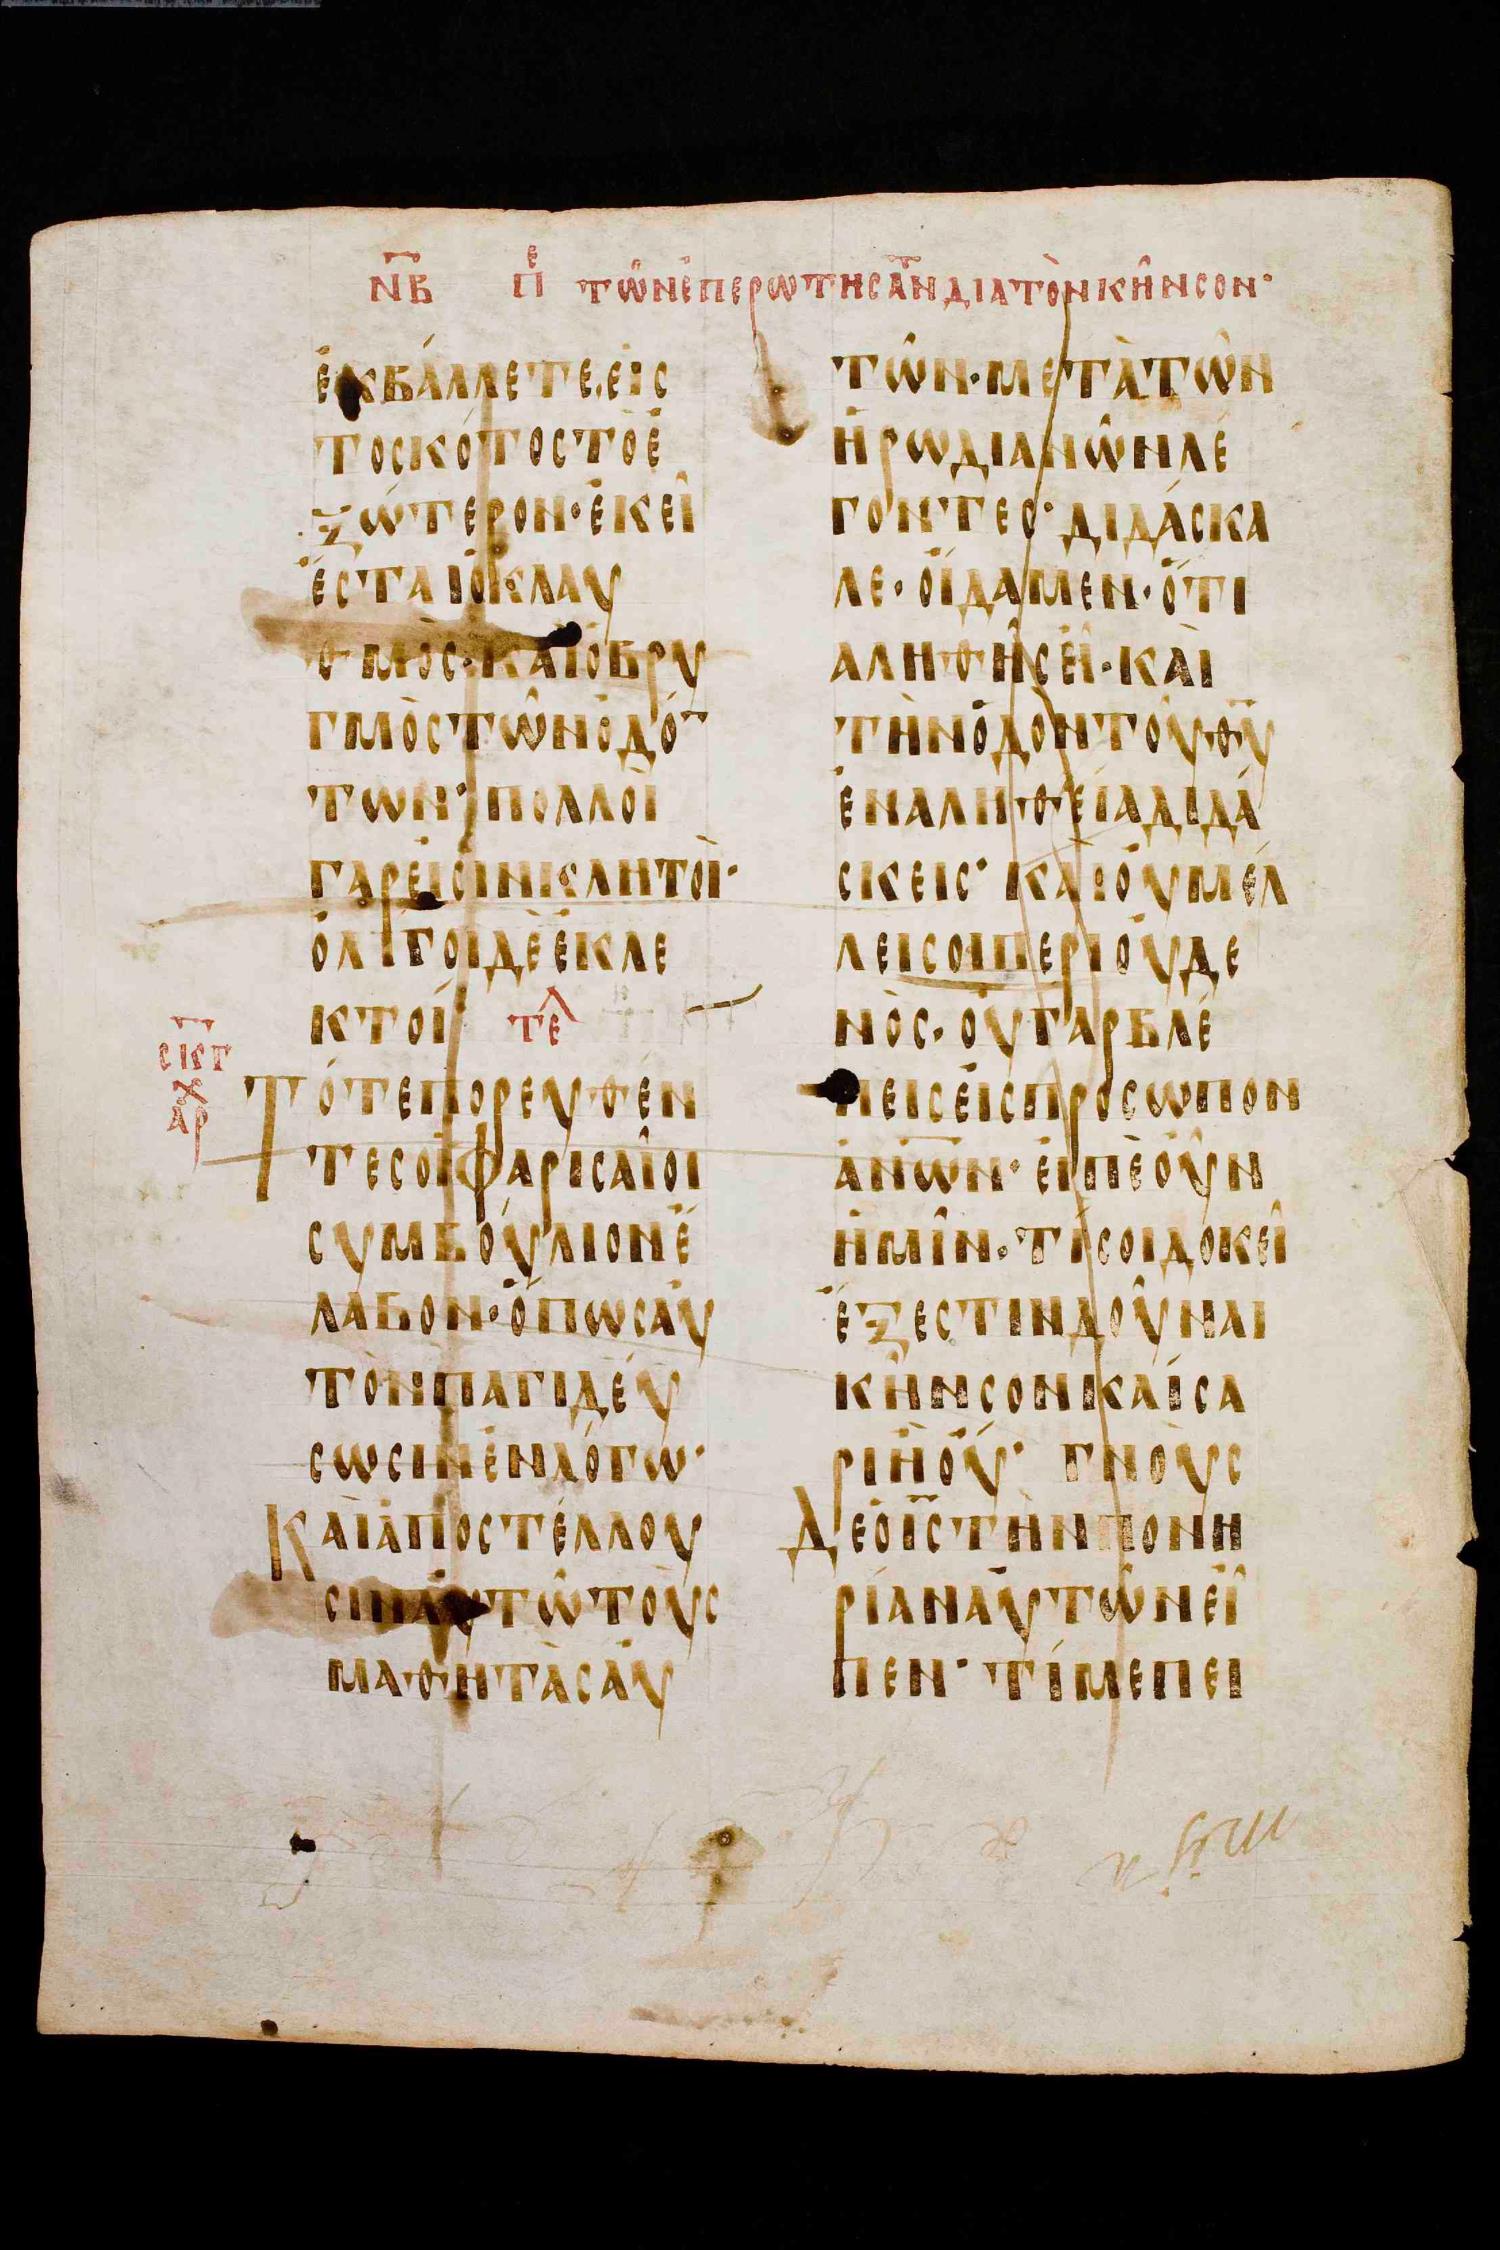 ΝΒ ΠΕ ΤΩ͂ΝἘΠΕΡΩΤΗΣΑ͂ΝΔΙΑΤῸΝΚΗ͂ΝΣΟΝ·
ἐκβάλλετε εἰς
τοσκότοςτοἐ
ξώτερον·ἐκεῖ
ἔσταιὁκλαυ
θμὸς·καὶὁβρυ
γμὸςτῶνὀδό
των· πολλοὶ
γαρεἰσὶνκλητοὶ·
ὀλίγοιδὲἐκλε
κτοί τελ
σκγ
αρχ
Τότεπορευθέν
τεςοἱφαρισαῖοι
συμβούλιονἔ
λαβον·ὅπωςαὐ
τὸνπαγιδεύ
σωσινἐνλόγω·
Καὶἀποστέλλου
σιναὐτῶτοὺς
μαθητὰςαὐ
τῶν·μετὰτῶν
ἡρωδιανῶνλέ
γοντες· διδάσκα
λε· οἴδαμεν·ὅτι
αληθὴςεἶ·καὶ
τὴνὁδὸντοῦθυ
ἐναληθείαδιδά
σκεις· καὶοὐμέλ
λεισοιπεριοὐδε
νὸς· οὐγαρβλέ
πειςεἰςπροσωπον
ἀνων· εἰπὲοὖν
ἡμῖν· τίσοιδοκεῖ
ἔξεστινδοῦναι
κῆνσονκαίσα
ριἢοὔ· γνοὺς
Δεὁιςτὴνπονη
ρίαναὐτῶνεἶ
πεν· τίμεπει